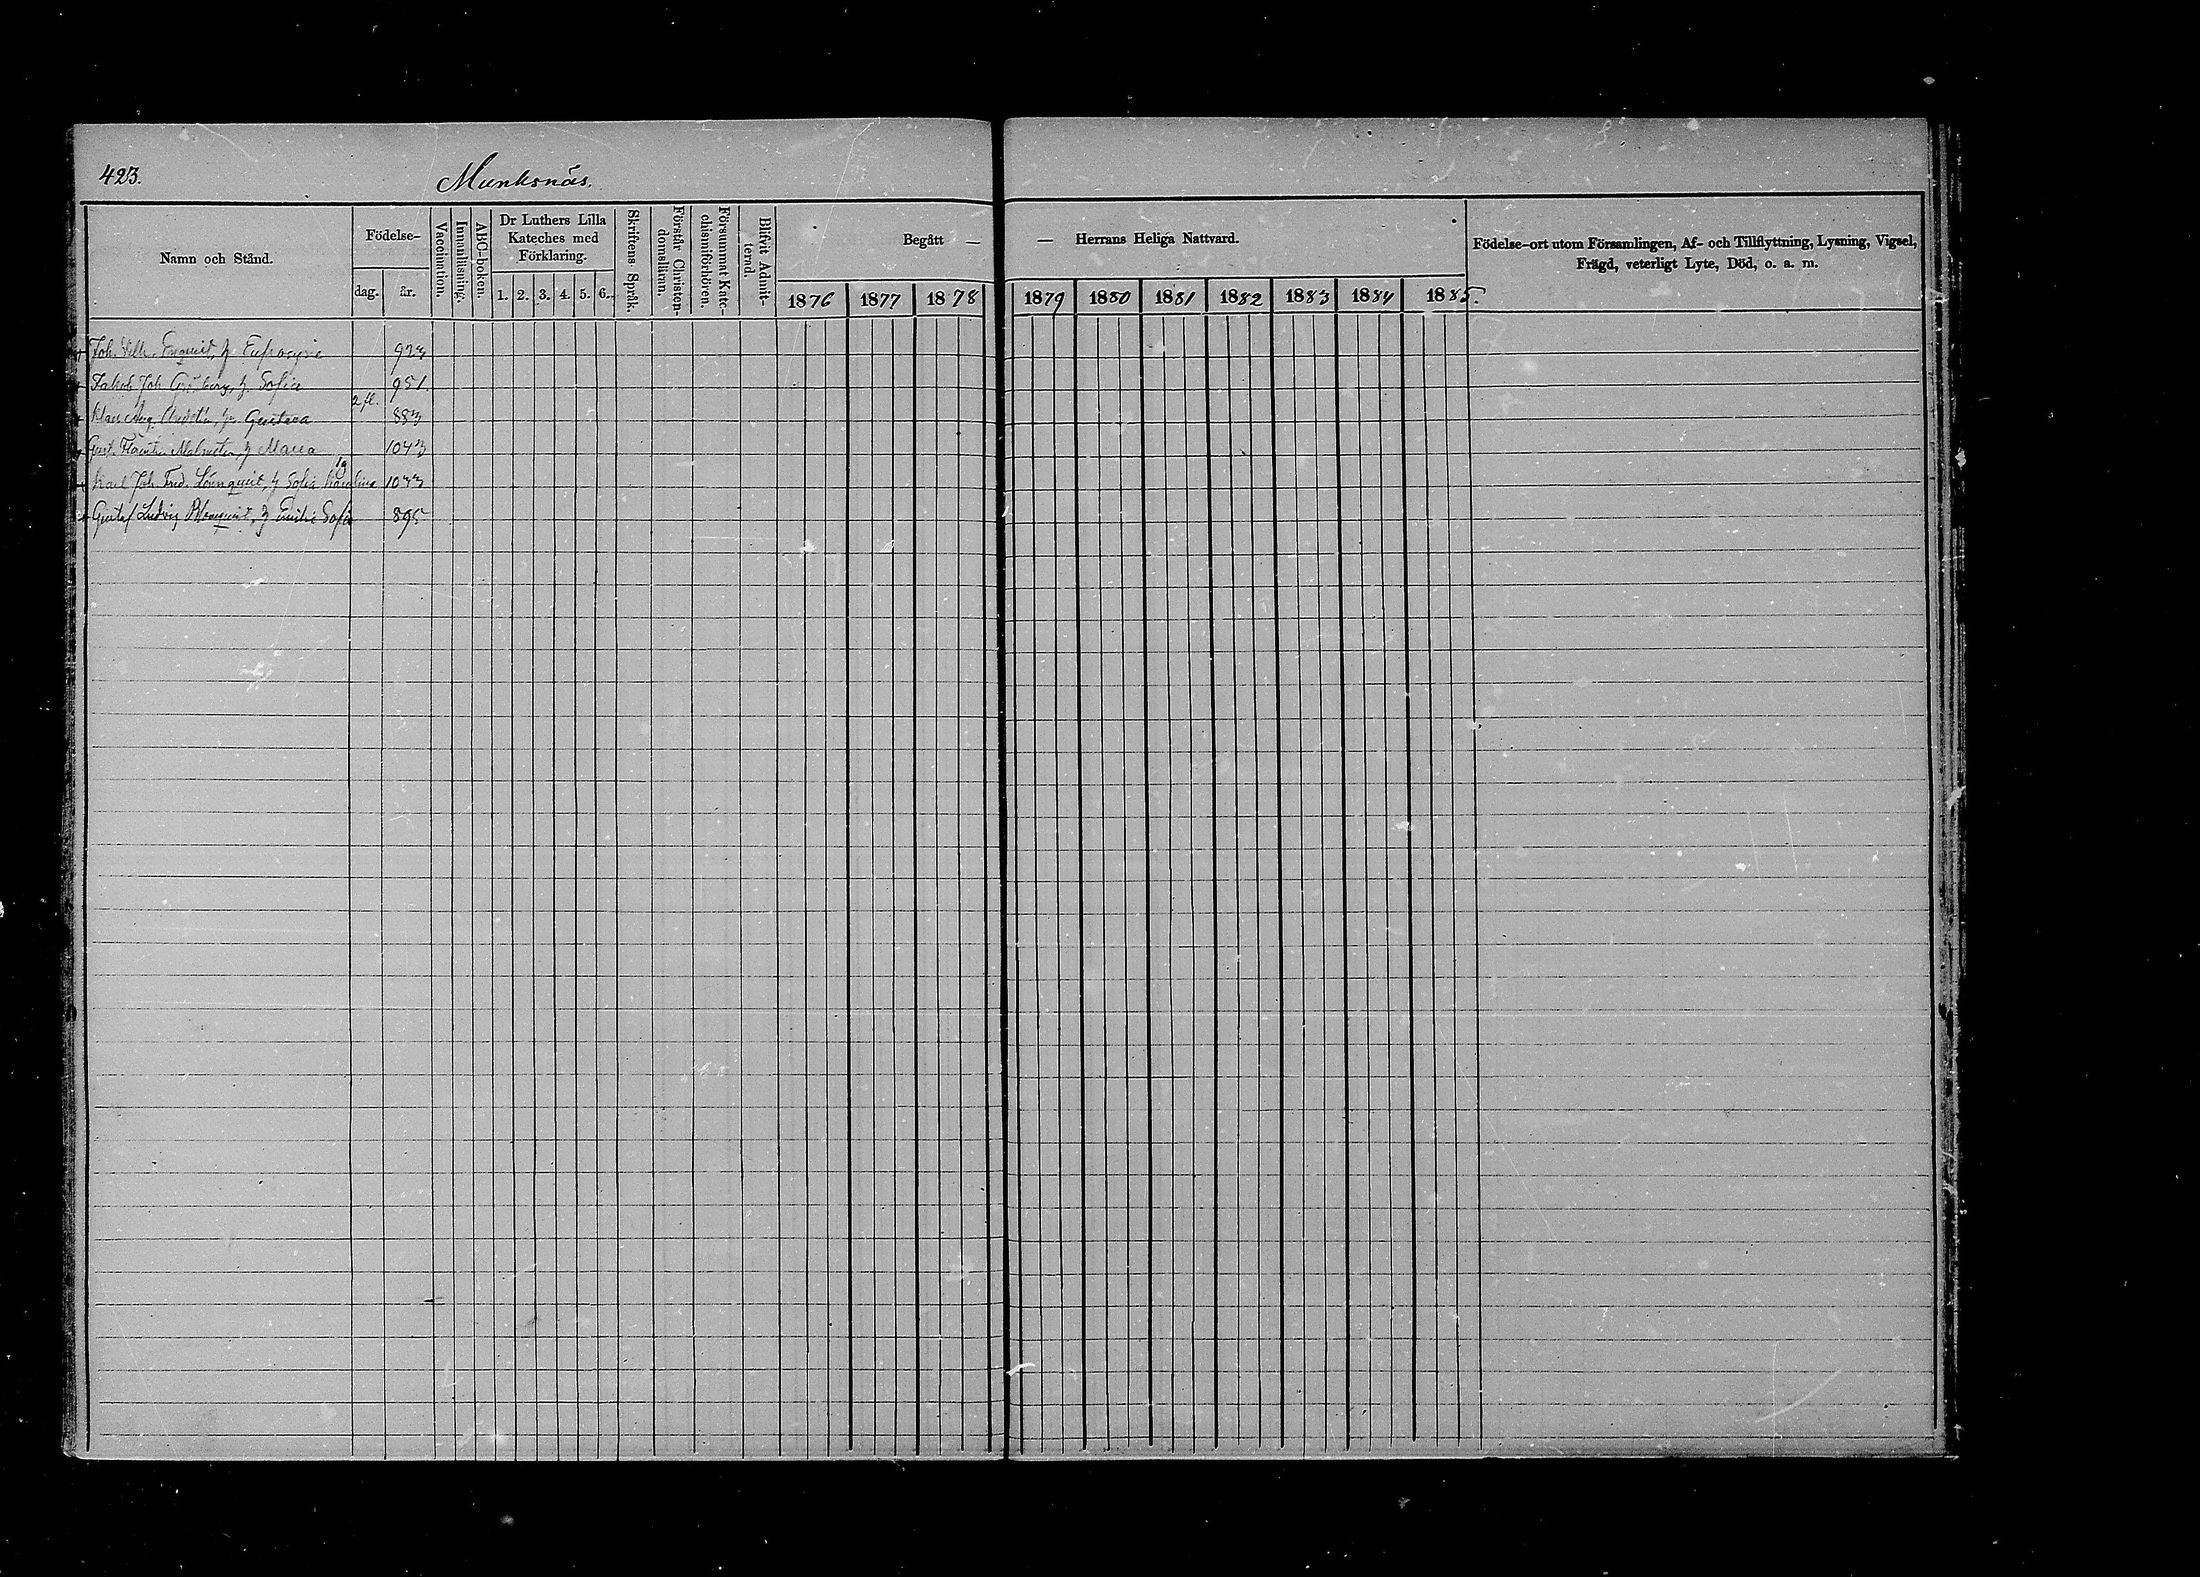 423.
Munksnäs.
Namn och Stånd.
Födelse-
dag.
år.
Vaccination.
Innanläsning.
ABC-boken.
Dr Luthers Lilla
Kateches med
Förklaring.
1. 2. 3. 4. 5. 6.
Skriftens Språk.
Förstår Christen-
domsläran.
Försummat Kate-
chismiförhören.
Blifvit Admit-
terad.
Begått — — Herrans Heliga Nattvard.
1876 1877 1878 1879 1880 1881 1882 1883 1884 1885.
Födelse-ort utom Församlingen, Af- och Tillflyttning, Lysning, Vigsel,
Frägd, veterligt Lyte, Död, o. a. m.
Joh. Vilh. Enquist, h Eufrosyne 923
Jakob Joh. h. Sofia 951
2 fl.
Klas Aug. h. Gustava 883
Gust. h Maria 1043
19
Karl Joh. Fred. Lönnquist, h Sofia Karolina 1033
Gustaf Ludvig Blomquist, h Emilie Sofia 895